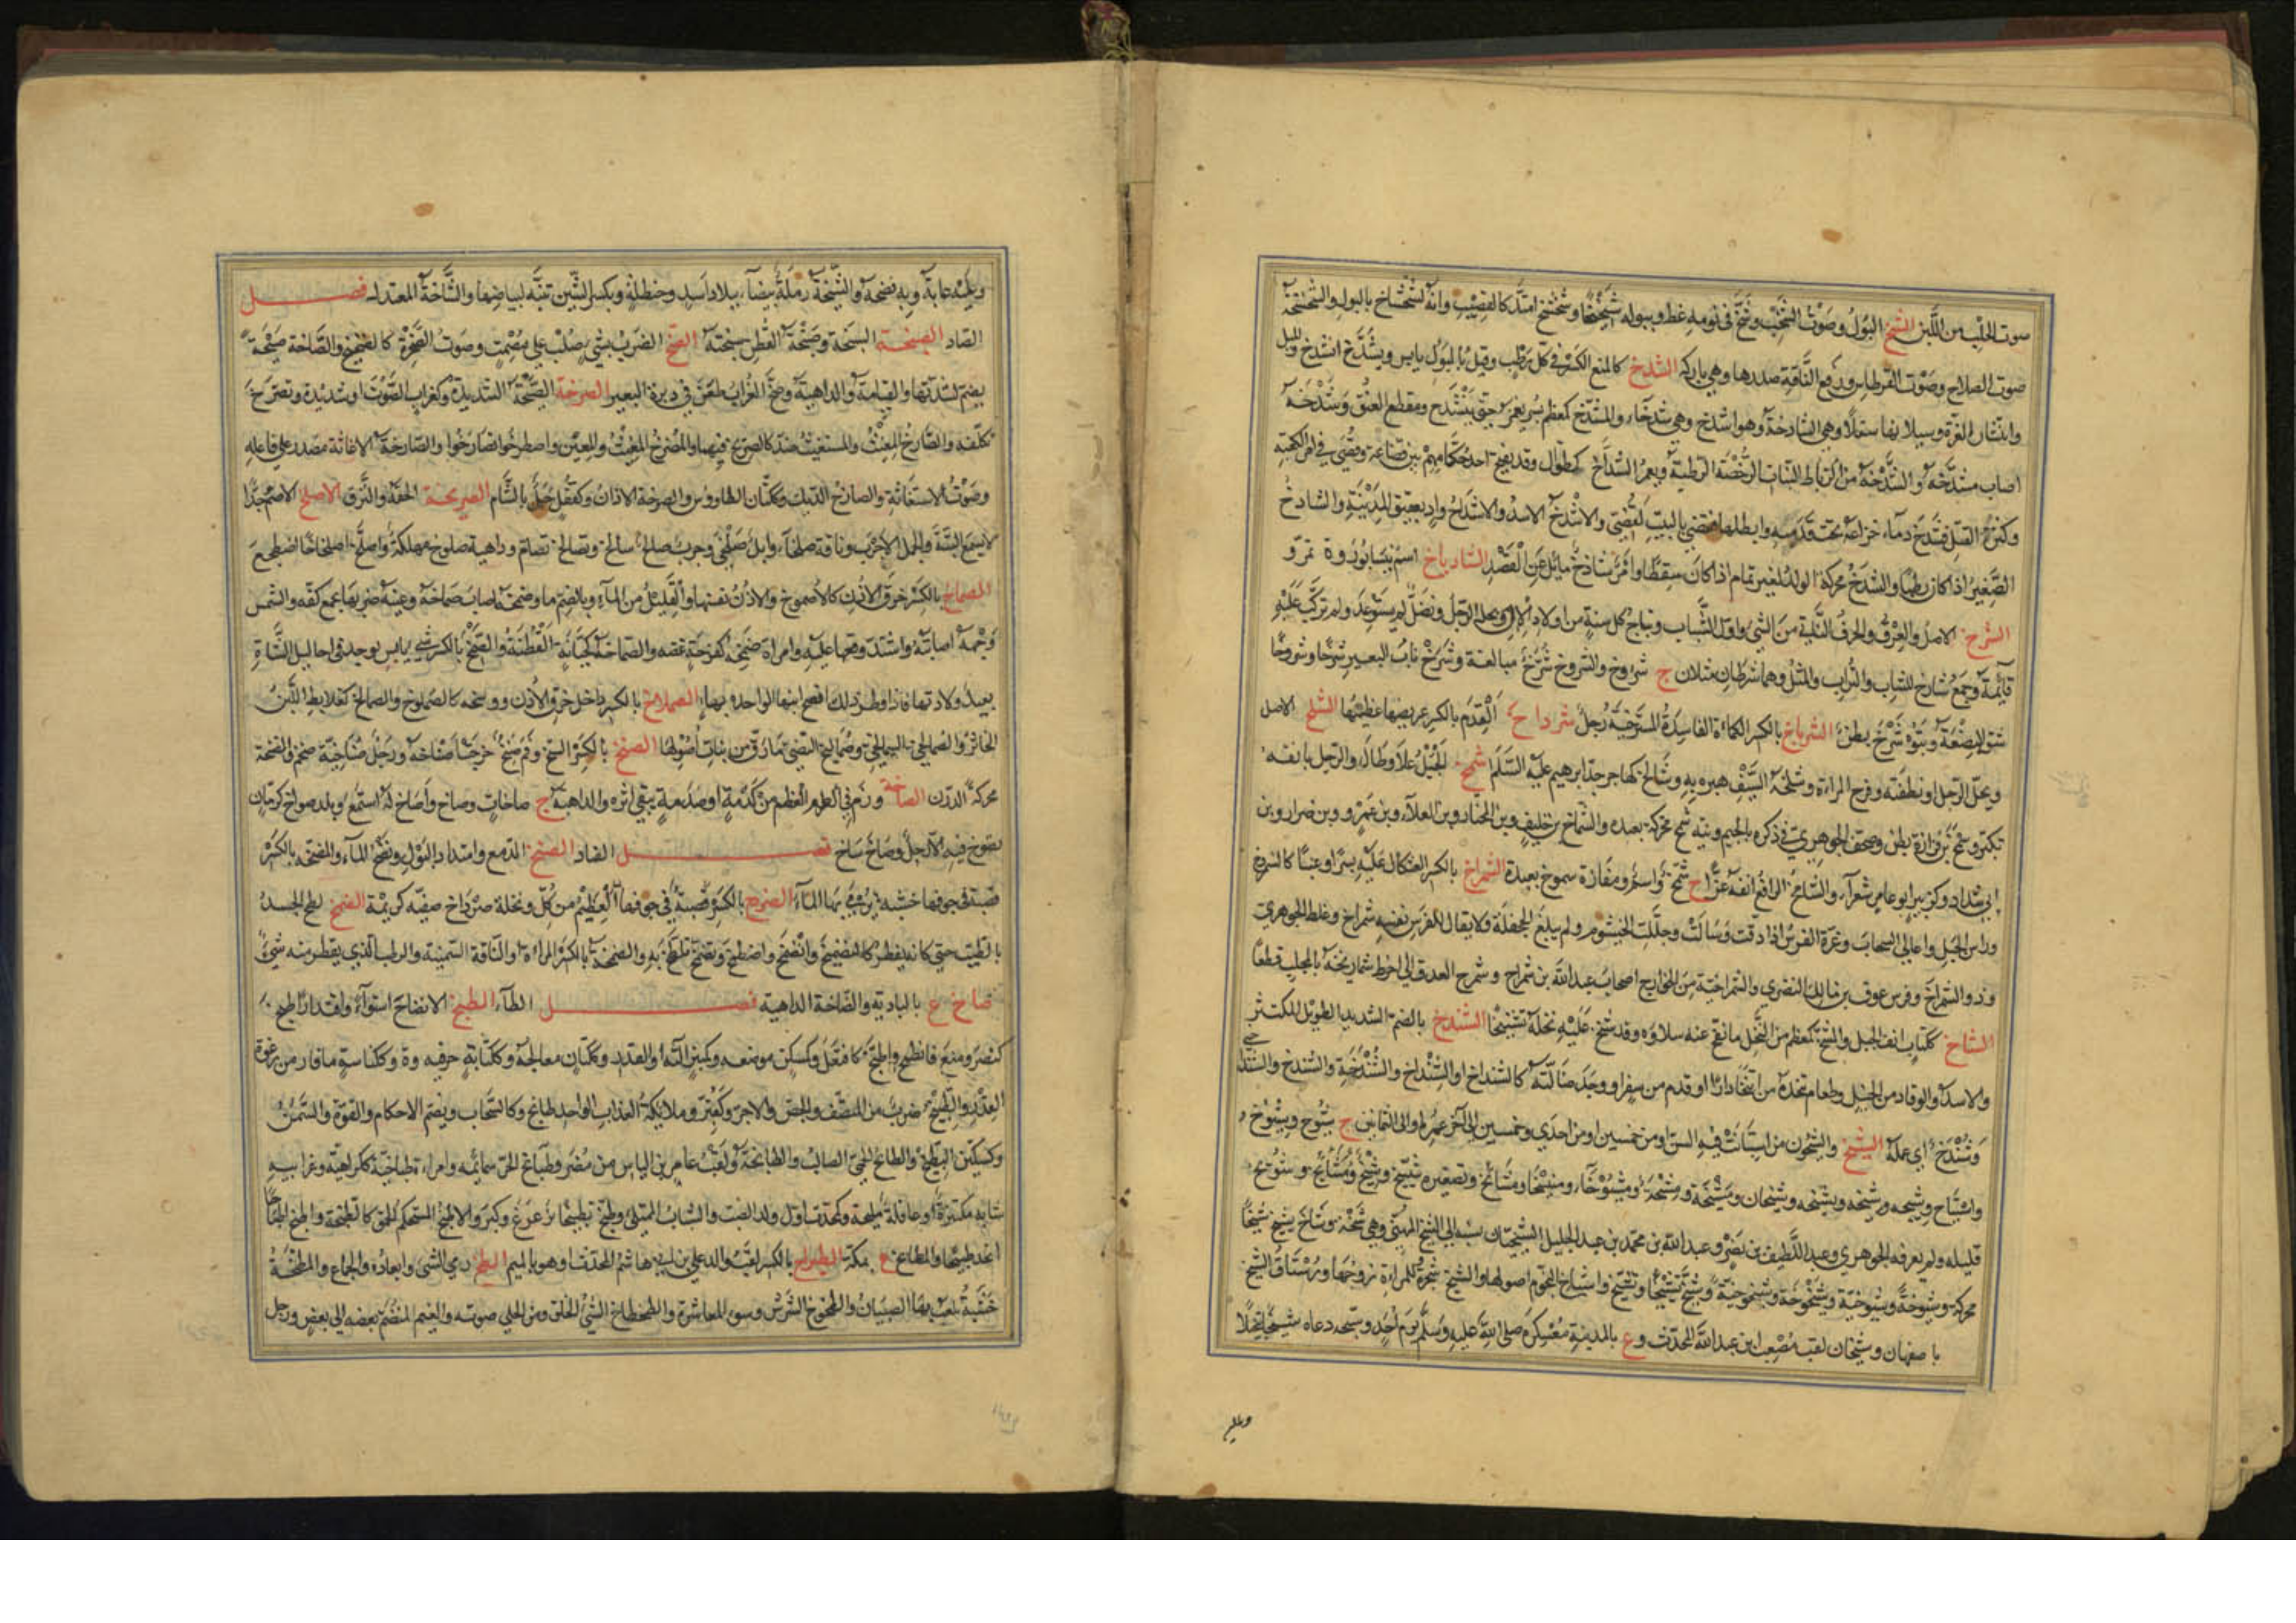 صوت الحلب من اللبن الشخ البول وصوت الشخب وشخ في نومه غط وببوله شخيخا وشخشخ امتد كالقضيب وانه لشخشاخ بالبول والشخشخة
صوت السلاح وصوت القرطاس ورفع الناقة صدرها وهي باركة الشدخ كالمنع الكسر في كل رطب وقيل يابس ويشدخ انشدخ والميل
وانتشار الغرة وسيلانها سفلا وهي الشادخة وهو اشدخ وهي شدخاء والمشدخ كمعظم بسر يغمز حتى ينشدخ ومقطع العنق وشدخه
اصاب مشدخه والشدخة من النبات الرخصة الرطبة ويعمر الشداخ كطوال وقد يفتح احد حكامهم بين قضاعة وقصي في امر الكعبة
وكثر القتل فشدخ دماء خزاعة تحت قدميه وابطلها فقضى بالبيت لقصي والاشدخ الاسد والاشداخ واد بعقيق المدينة والشادخ
الصغير اذا كان رطبا والشدخ محركة الولد لغير تمام اذا كان سقطا وامر شادخ مائل عن القصد الشادياخ اسم نيسابور وة بمرو
الشرخ الاصل والعرق والحرف الناتئ من الشيء واول الشباب ونتاج كل سنة من اولاد الابل ونجل الرجل ونصل لم يسق بعد ولم يركب عليه
قائمه وجمع شارخ للشاب والتراب والمثل وهما شرخان مثلان ج شروخ والشروخ شرخ مبالغة وشرخ ناب البعير شرخا وشروخا
شق البضعة وبنو شرخ بطن الشرباخ بالكسر الكمأة الفاسدة المسترخية رجل شرداخ القدم بالكسر عريضها غليظها الشلخ الاصل
ونجل الرجل او نطفته وفرج المراة وشلخه السيف هبره به وشالخ كهاجر جد ابرهيم عليه السلم شمخ الجبل علا وطال والرجل بانفه
تكبر وشمخ بن فزارة بطن وصحف الجوهري في ذكره بالجيم ونية شمخ محركة بعيده والشماخ بن خليف وبن المختار وبن العلاء وبن عمرو وبن ضرار وبن
ابي شداد وكزبير ابو عامر شعراء والشامخ الرافع انفه عزا ج شمخ واسم ومفازة شموخ بعيدة الشمراخ بالكسر العثكال عليه بسر او عنب كالشمروخ
وراس الجبل واعالي السحاب وغرة الفرس اذا دقت وسالت وجللت الخيشوم ولم يبلغ الجحفلة ولا يقال للفرس نفسه شمراخ وغلط الجوهري
وذو الشمراخ فرس عوف بن مالك النصري والشمراخية من الخوارج اصحاب عبد الله بن شمراخ وشمرخ العذق اي اخرط شماريخه بالمخلب قطعا
الشناخ ككتاب انف الجبل والمشنخ كمعظم من النخل ما نقح عنه سلاؤه وقد شنخ عليه نخله تشنيخا الشندخ بالضم الشديد الطويل المكتنز
والاسد والوقاد من الخيل وطعام يتخذه من ابتنى دارا او قدم من سفر او وجد ضالته كالشنداخ او الشنداخ والشندخة والشندخ والشندخي
وشندخ اي عمله الشيخ والشيخون من استبانت فيه السن او من خمسين او من احدى وخمسين الى آخر عمره او الى الثمانين ج شيوخ وشيوخ
واشياخ وشيخة وشيخة وشيخان ومشيخة ومشيخة ومشيوخاء ومشيخاء ومشائخ وتصغيره شييخ وشييخ وشويخ
قليلة ولم يعرفه الجوهري وعبد اللطيف بن نصر وعبد الله بن محمد بن عبد الجليل الشيخيان نسبة الى الشيخ الميهني وهي شيخة وشاخ يشيخ شيخا
محركة وشيوخة وشيوخية وشيخوخة وشيخوخية وشيخ تشييخا وتشيخ واشياخ النجوم اصولها والشيخ شجرة وللمراة زوجها ورستاق الشيخ
باصفهان وشيخان لقب مصعب بن عبد الله المحدث وع بالمدينة معسكره صلى الله عليه وسلم يوم احد وشيخه دعاه شيخا تبجيلا
وعليه
وعليه عابه وبه فضحه والشيخة رملة بيضاء ببلاد اسد وحنظلة وبكسر الشين ثنية لبياضها والشاخة المعتدل فصل
الصاد الصبخة السبخة وصبخة القطن سبخته الصخ الضرب بشيء صلب على مصمت وصوت الصخرة كالصخيخ والصاخة صيحة
يصم لشدتها والقيامة والداهية وصخ الغراب طعن في دبرة البعير الصرخة الصيحة الشديدة وكغراب الصوت او شديده وتصرخ
تكلفه والصارخ المغيث والمستغيث ضد كالصريخ فيهما والمصرخ المغيث والمعين واصطرخوا تصارخوا والصارخة الاغاثة مصدر على فاعله
وصوت الاستغاثة والصارخ الديك وككتان الطاووس والصرخة الاذان وكقفل جبل بالشام الصريخة الخفة والنزق الاصلخ الاصم جدا
لا يسمع البتة والجمل الاجرب وناقة صلخاء وابل صلخى وجرب صالخ سالخ وتصالخ تصام وداهية صلوخ مهلكة واصلخ اصلخاخا اضطجع
الصماخ بالكسر خرق الاذن كالاصموخ والاذن نفسها والقليل من الماء وبالضم ماء وصمخه اصاب صماخه وعينه ضربها بجمع كفه والشمس
وجهه اصابته واشتد وقعها عليه وامراة صمخة كفرحة غضة والصماخة كجبانة القطنة والصمخ بالكسر شيء يابس يوجد في احاليل الشاة
بعيد ولادتها فاذا فطر ذلك افصح لبنها الواحدة بهاء الصملاخ بالكسر داخل خرق الاذن ووسخه كالصملوخ والصمالخ كعلابط اللبن
الخاثر والصمالخي السمالخي وصماليخ النصي ما رق من نبات اصولها الصنخ بالكسر السنخ وفم صنخ خرجت اصناخه ورجل صناخية ضخم والصنخة
محركة الدرن الصاخة ورم في العظم من كدمة او صدمة يبقى اثره والداهية ج صاخات وصاخ واصاخ له استمع وبلد صواخ كرمان
يصوخ فيه الارجل وصاخ ساخ فصل الضاد الضخ الدمع وامتداد البول ونضح الماء والمضخة بالكسر
قصبة في جوفها خشبة يرمى بها الماء الضردخ بالكسر العظيم من كل ونخلة ضرداخ صفية كريمة الضمخ لطخ الجسد
بالطيب حتى كانه يقطر كالتضميخ وانضمخ واضطمخ وتضمخ تلطخ به والضمخة بالكسر المراة او الناقة السمينة والرطب الذي يقطر منه شيء
ضاخ ع بالبادية والضاخة الداهية فصل الطاء الطبخ الانضاج استواء واقتدارا طبخ
كنصر ومنع فانطبخ واطبخ كافتعل وكمسكن موضعه وكمنبر آلته او القدر وككتان معالجه وككتابة حرفته وة وككناسة ما فار من رغوة
القدر والطبيخ ضرب من المنصف والجص والاجر وكقبر وملائكة العذاب الواحد طابخ وكالسحاب ويضم الاحكام والقوة والسمن
وكسكين البطيخ والطابخ الحمى الصالب والطابخة ولقب عامر بن الياس بن مضر وطباخ الحر سمائمه وامراة طباخية ككراهية وغرابية
شابة مكتنزة او عاقلة مليحة وكمحدث اول ولد الضب والشاب الممتلئ وطبخ تطبيخا ترعرع وكبر والاطبخ المستحكم الحمق كالطبخة واطبخ اطباخا
اتخذ طبيخا والمطابخ ع بمكة الطبراخ بالكسر لقب والد علي بن ابي هاشم المحدث او هو بالميم الطخ رمي الشيء وابعاده والجماع والمطخة
خشبة يلعب بها الصبيان والطخوخ الشرس وسوء المعاشرة والطخطاخ الشيء الخلق ومن الحلي صوته والغيم المنضم بعضه الى بعض ورجل